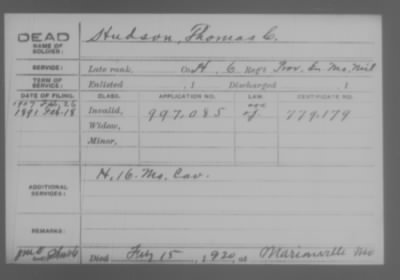 DEAD
NAME OF SOLDIER:
Hudson, Thomas C.
SERVICE:
Late rank, Co. H, 6 Reg't Prov. En. Mo. Mil
TERM OF SERVICE:
Enlisted , 1 Discharged , 1
DATE OF FILING. CLASS. APPLICATION NO. LAW. CERTIFICATE NO.
1907 Feb. 26
1891 Feb. 18 Invalid, 997.085 779.179
Widow,
Minor,
ADDITIONAL SERVICES:
H, 16. Mo. Cav.
REMARKS:
Died July 15, 1920 at Marionville Mo